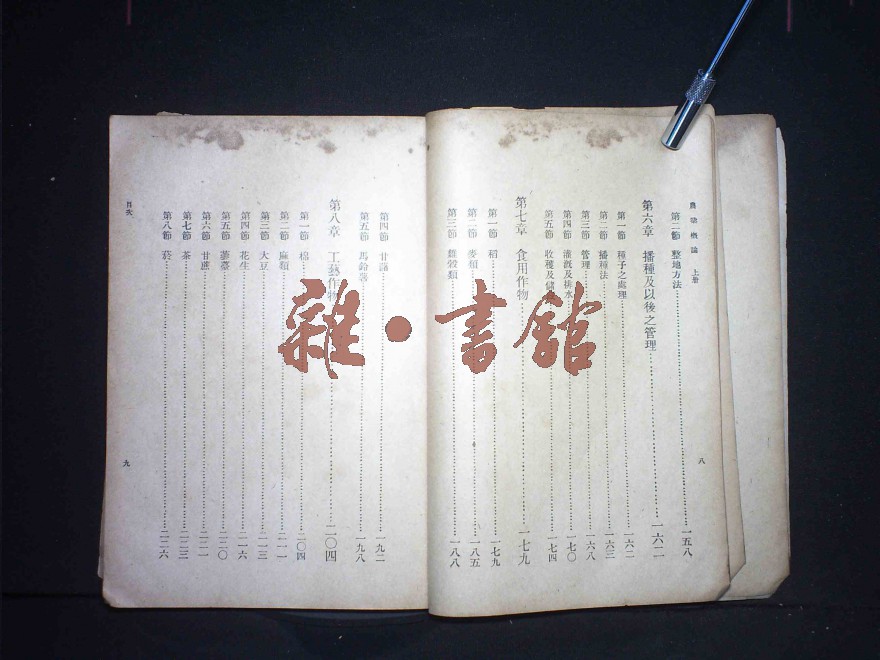 農業概論 上册
第二節 整地方法 一五八
第六章 播種及以後之管理 一六二
第一節 種子之處理 一六二
第二節 播種法 一六三
第三節 管理 一六八
第四節 灌漑及排水 一七〇
第五節 收穫及儲藏 一七四
第七章 食用作物 一七九
第一節 稻 一七九
第二節 麥類 一八五
第三節 雜穀類 一八八
八
第四節 甘藷 一九二
第五節 馬鈴薯 一九八
第八章 工藝作物 二〇四
第一節 棉 二〇四
第二節 麻類 二一一
第三節 大豆 二一三
第四節 花生 二一六
第五節 蕓薹 二二〇
第六節 甘蔗 二二一
第七節 茶 二二三
第八節 菸 二二六
目次
九
雜·書館